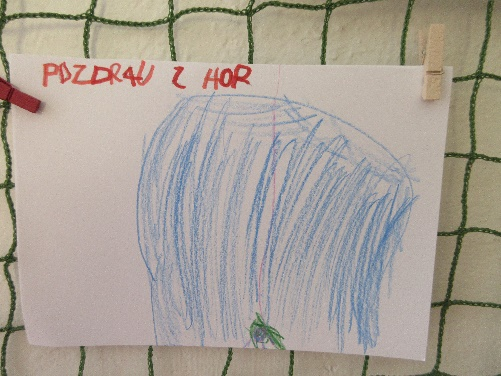 POZDRAV Z HOR